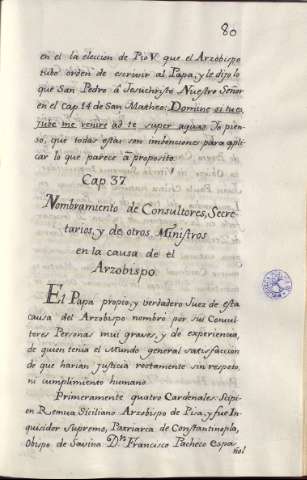 80
en el la eleccion de Pio V. que el Arzobispo
tubo orden de escrivir al Papa, y le dijo lo
que San Pedro â Jesuchristo Nuestro Señor
en el cap. 14 de San Matheo: Domine si tu es,
jube me venire ad te super aquas Yo pien-
so, que todas estas son imbenciones para apli-
car lo que parece a proposito.
Cap. 37.
Nombramiento de Consultores, Secre-
tarios, y de otros Ministros
en la causa de el
Arzobispo.
El Papa propio, y verdadero Juez de esta
causa del Arzobispo nombró por sus Consul-
tores Personas mui graves, y de experiencia,
de quien tenia el Mundo general satisfaccion
de que harian justicia rectamente sin respeto,
ni cumplimiento humano.
Primeramente quatro Cardenales: Scipi-
on Siciliano Arzobispo de Pisa, y fue In-
quisidor Supremo, Patriarca de Constantinopla,
Obispo de Savina Dn. Francisco Pacheco Espa-
ñol